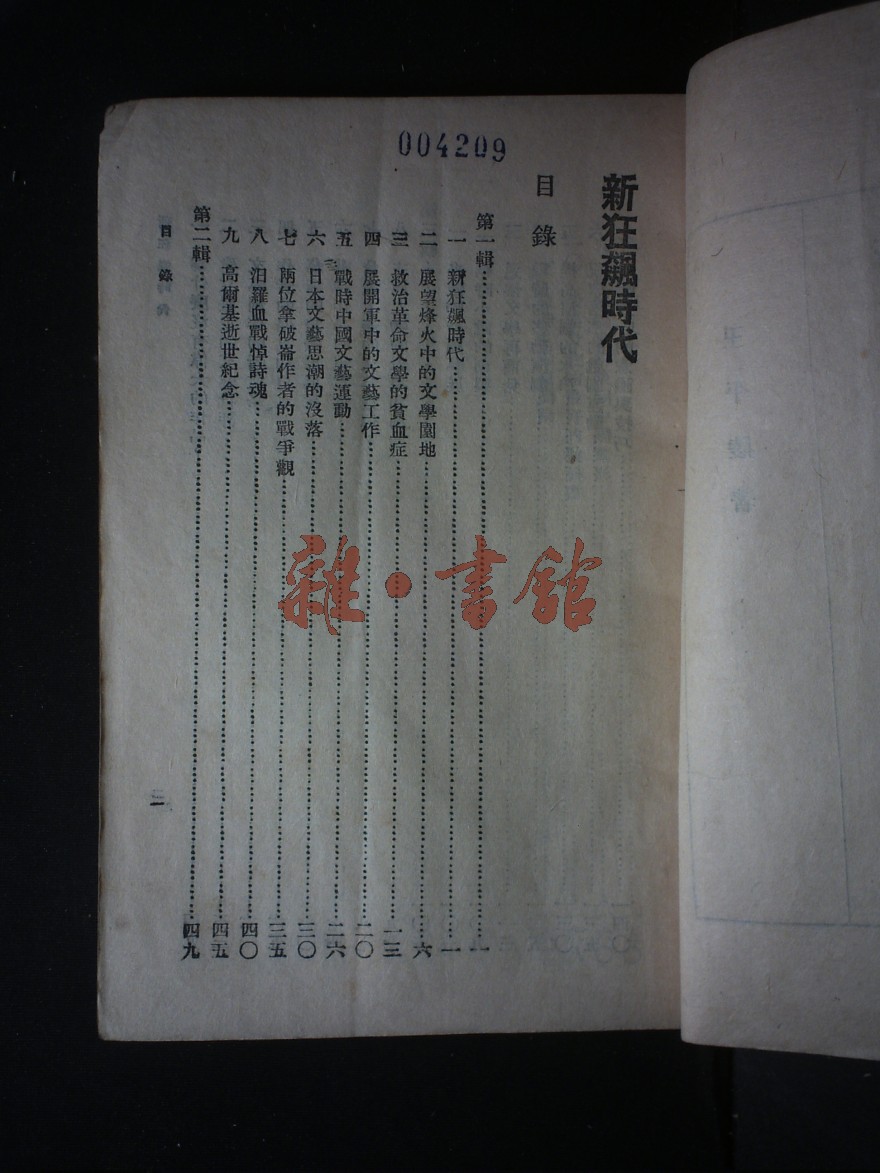 004209
新狂飆時代
目錄
第一輯……一
一 新狂飆時代……一
二 展望烽火中的文學園地……六
三 救治革命文學的貧血症……一三
四 展開軍中的文藝工作……二〇
五 戰時中國文藝運動……二六
六 日本文藝思潮的沒落……三〇
七 兩位拿破崙作者的戰爭觀……三五
八 汨羅血戰悼詩魂……四〇
九 高爾基逝世紀念……四五
第二輯……四九
目錄
一
雜·書館